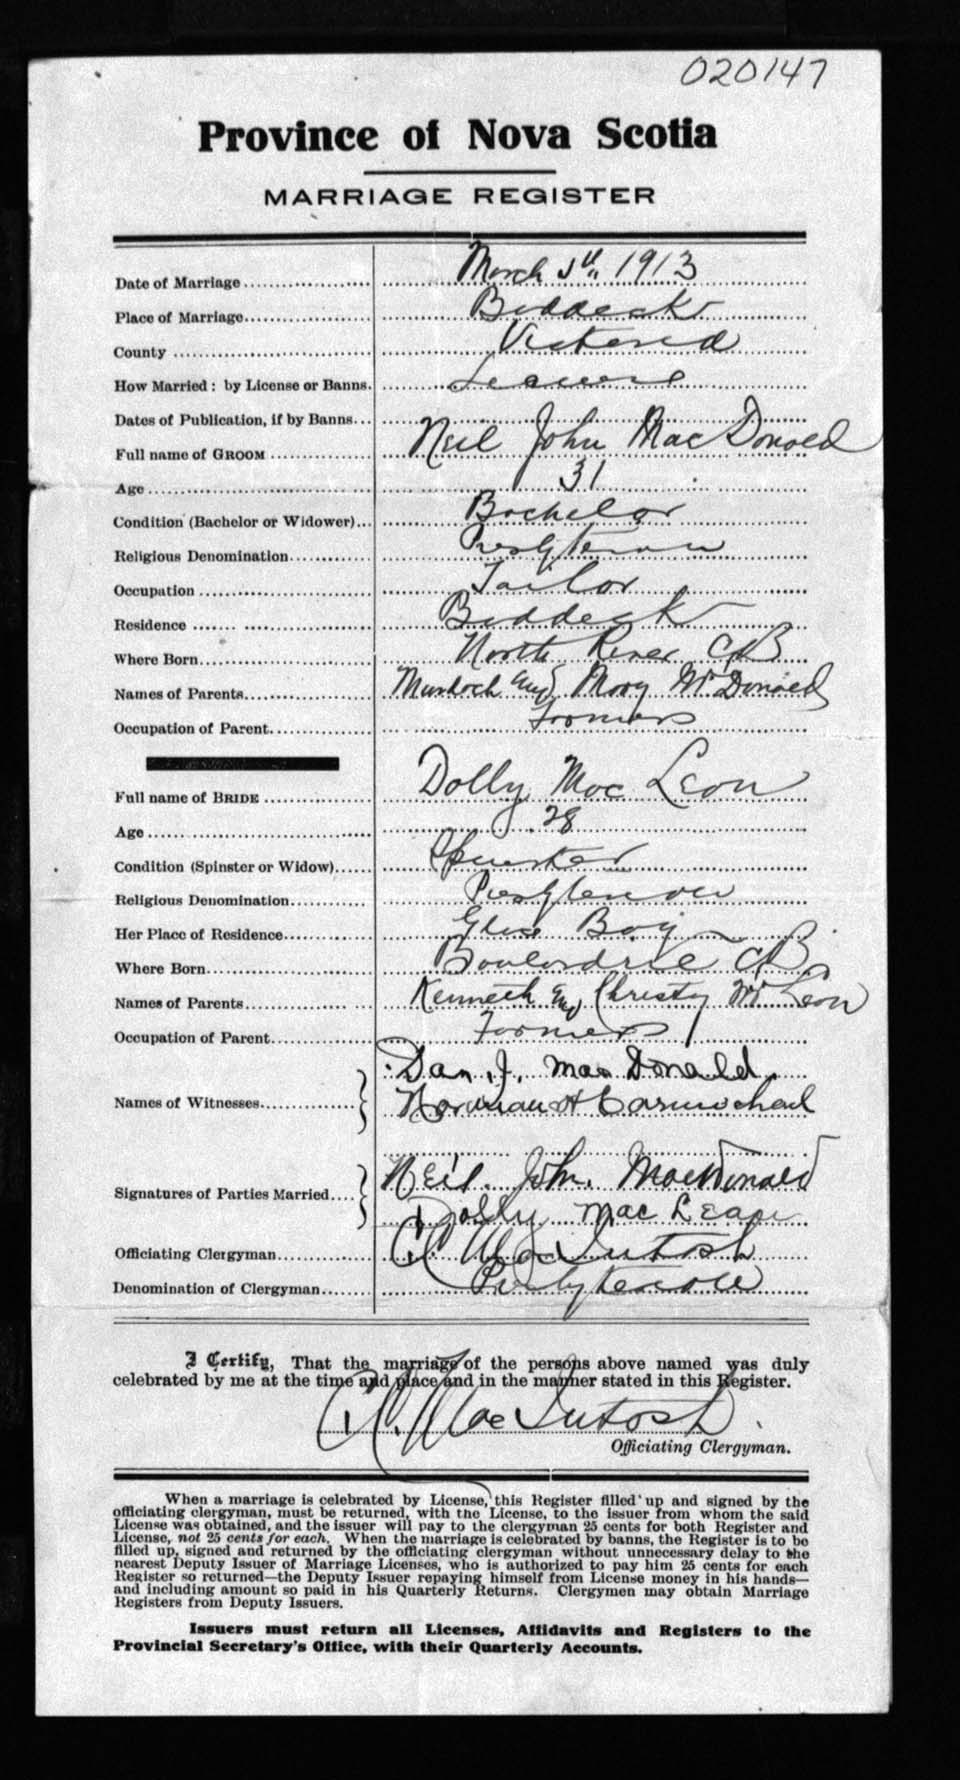 020147
Province of Nova Scotia
MARRIAGE REGISTER
Date of Marriage March 5th, 1913
Place of Marriage Baddeck
County Victoria
How Married: by License or Banns. License
Dates of Publication, if by Banns
Full name of GROOM Neil John MacDonald
Age 31
Condition (Bachelor or Widower) Bachelor
Religious Denomination Presbyterian
Occupation Tailor
Residence Baddeck
Where Born North River CB
Names of Parents Murdoch and Mary McDonald
Occupation of Parent Farmers
Full name of BRIDE Dolly Mac Lean
Age 28
Condition (Spinster or Widow) Spinster
Religious Denomination Presbyterian
Her Place of Residence Glace Bay
Where Born Boulardrie CB
Names of Parents Kenneth and Christy McLean
Occupation of Parent Farmers
Names of Witnesses Dan. J. MacDonald
Norman H Carmichael
Signatures of Parties Married Neil. John. MacDonald
Dolly MacLean
Officiating Clergyman MacIntosh
Denomination of Clergyman Presbyterian
I Certify, That the marriage of the persons above named was duly
celebrated by me at the time and place and in the manner stated in this Register.
MacIntosh.
Officiating Clergyman.
When a marriage is celebrated by License, this Register filled up and signed by the
officiating clergyman, must be returned, with the License, to the issuer from whom the said
License was obtained, and the issuer will pay to the clergyman 25 cents for both Register and
License, not 25 cents for each. When the marriage is celebrated by banns, the Register is to be
filled up, signed and returned by the officiating clergyman without unnecessary delay to the
nearest Deputy Issuer of Marriage Licenses, who is authorized to pay him 25 cents for each
Register so returned—the Deputy Issuer repaying himself from License money in his hands—
and including amount so paid in his Quarterly Returns. Clergymen may obtain Marriage
Registers from Deputy Issuers.
Issuers must return all Licenses, Affidavits and Registers to the
Provincial Secretary's Office, with their Quarterly Accounts.